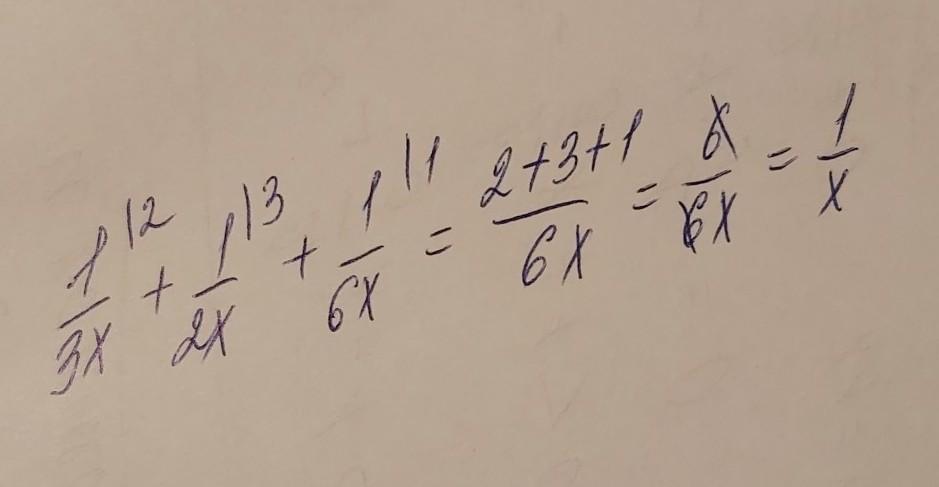 1/3x |2 + 1/2x |3 + 1/6x |1 = 2+3+1/6x = 6/6x = 1/x